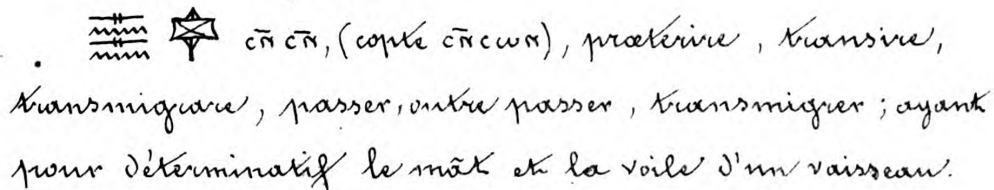 . 𓋴𓈖𓋴𓈖 𓊡 ⲥⲛ̄ ⲥⲛ̄, (copte ⲥⲛ̄ⲥⲱⲛ), præterire, transire,
transmigrare, passer, outre passer, transmigrer; ayant
pour déterminatif le mât et la voile d'un vaisseau.